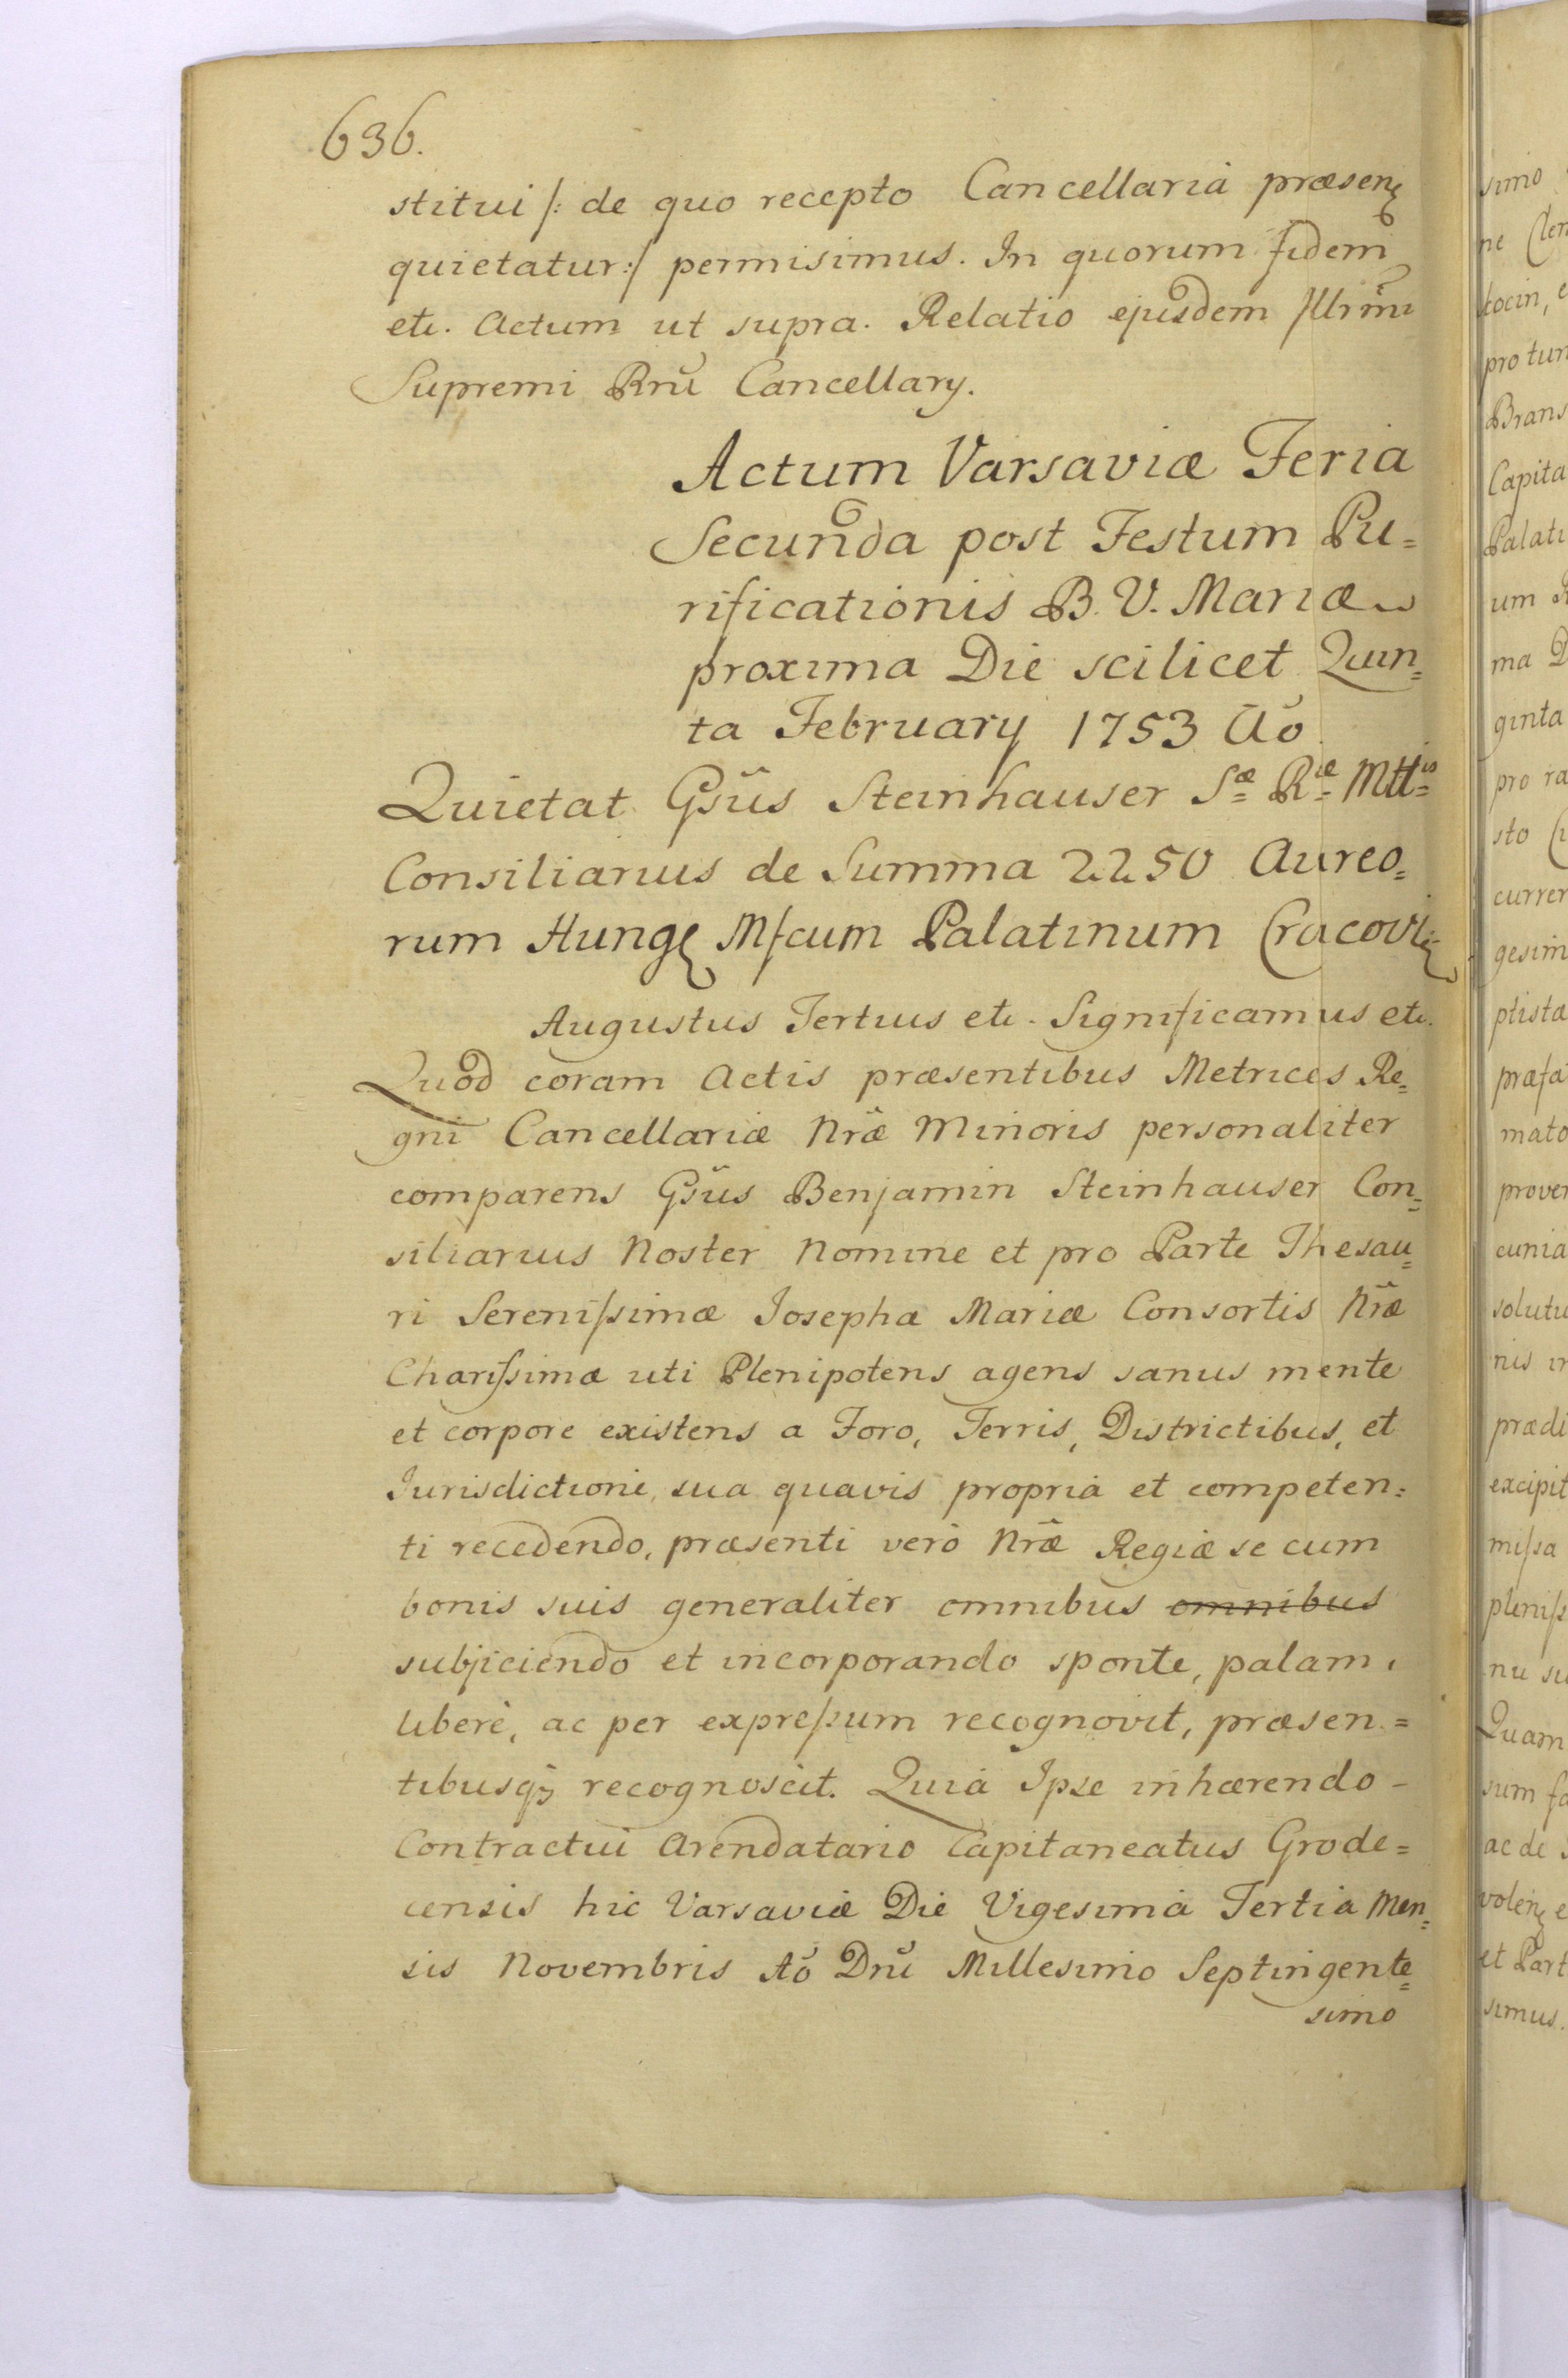 636.
stitui /: de quo recepto Cancellaria præsen
quietatur :/ permisimus. In quorum fidem
etc. Actum ut supra. Relatio ejusdem Illrmi
Supremi Rnū Cancellary.
Actum Varsaviæ Feria
Secunda post Festum Pu=
rificationis B. V. Mariæ
proxima Die scilicet Quin=
ta February 1753 Aō
Quietat Gsūs Steinhauser Sæ Riæ Mttis
Consiliarius de Summa 2250 Aureo=
rum Hung Mfcum Palatinum Cracovi
Augustus Tertius etc. Significamus etc.
Quod coram Actis præsentibus Metrices Re=
gni Cancellariæ Nræ Minoris personaliter
comparens Gsūs Benjamin Steinhauser Con=
siliarius Noster Nomine et pro Parte Thesau=
ri Serenissimæ Josepha Mariæ Consortis Nræ
Charissimæ uti Plenipotens agens sanus mente
et corpore existens a Foro, Terris, Districtibus, et
Jurisdictioni, sua quavis propria et competen=
ti recedendo, præsenti verò Nræ Regiæ se cum
bonis suis generaliter omnibus omnibus
subjiciendo et incorporando sponte, palam,
liberè, ac per expressum recognovit, præsen=
tibusq; recognoscit. Quia Ipse inhærendo -
Contractui Arendatario Capitaneatus Grode=
censis hic Varsaviæ Die Vigesima Tertia Men=
sis Novembris Aō Dnī Millesimo Septingente=
simo
simo
ne Clen
tocin, e
pro tun
Brans
Capita
Palati
um
ma D
ginta
pro ra
sto
currer
gesim
ptista
præfa
mato
prover
cunia
solutu
nis in
prædi
excipit
missa
pleniss
nu su
Quam
sum fa
ac de s
volen e
et Part
simus.